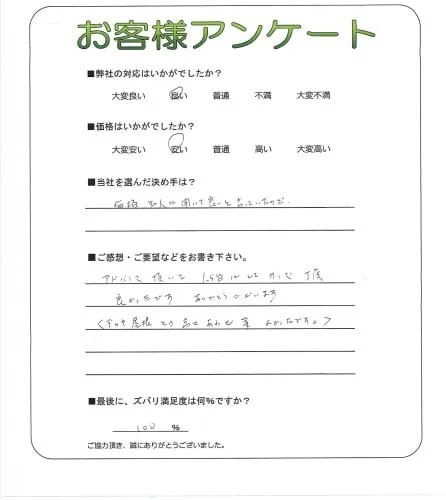 お客様アンケート
■弊社の対応はいかがでしたか？
大変良い 良い 普通 不満 大変不満
■価格はいかがでしたか？
大変安い 安い 普通 高い 大変高い
■当社を選んだ決め手は？
価格 知人に聞いて良いと言っていたので.
■ご感想・ご要望などをお書き下さい。
アドバイス頂いて 1.5台にして
良かったです ありがとうございます
屋根 高さ よかったですよ>
■最後に、ズバリ満足度は何%ですか？
100 %
ご協力頂き、誠にありがとうございました。